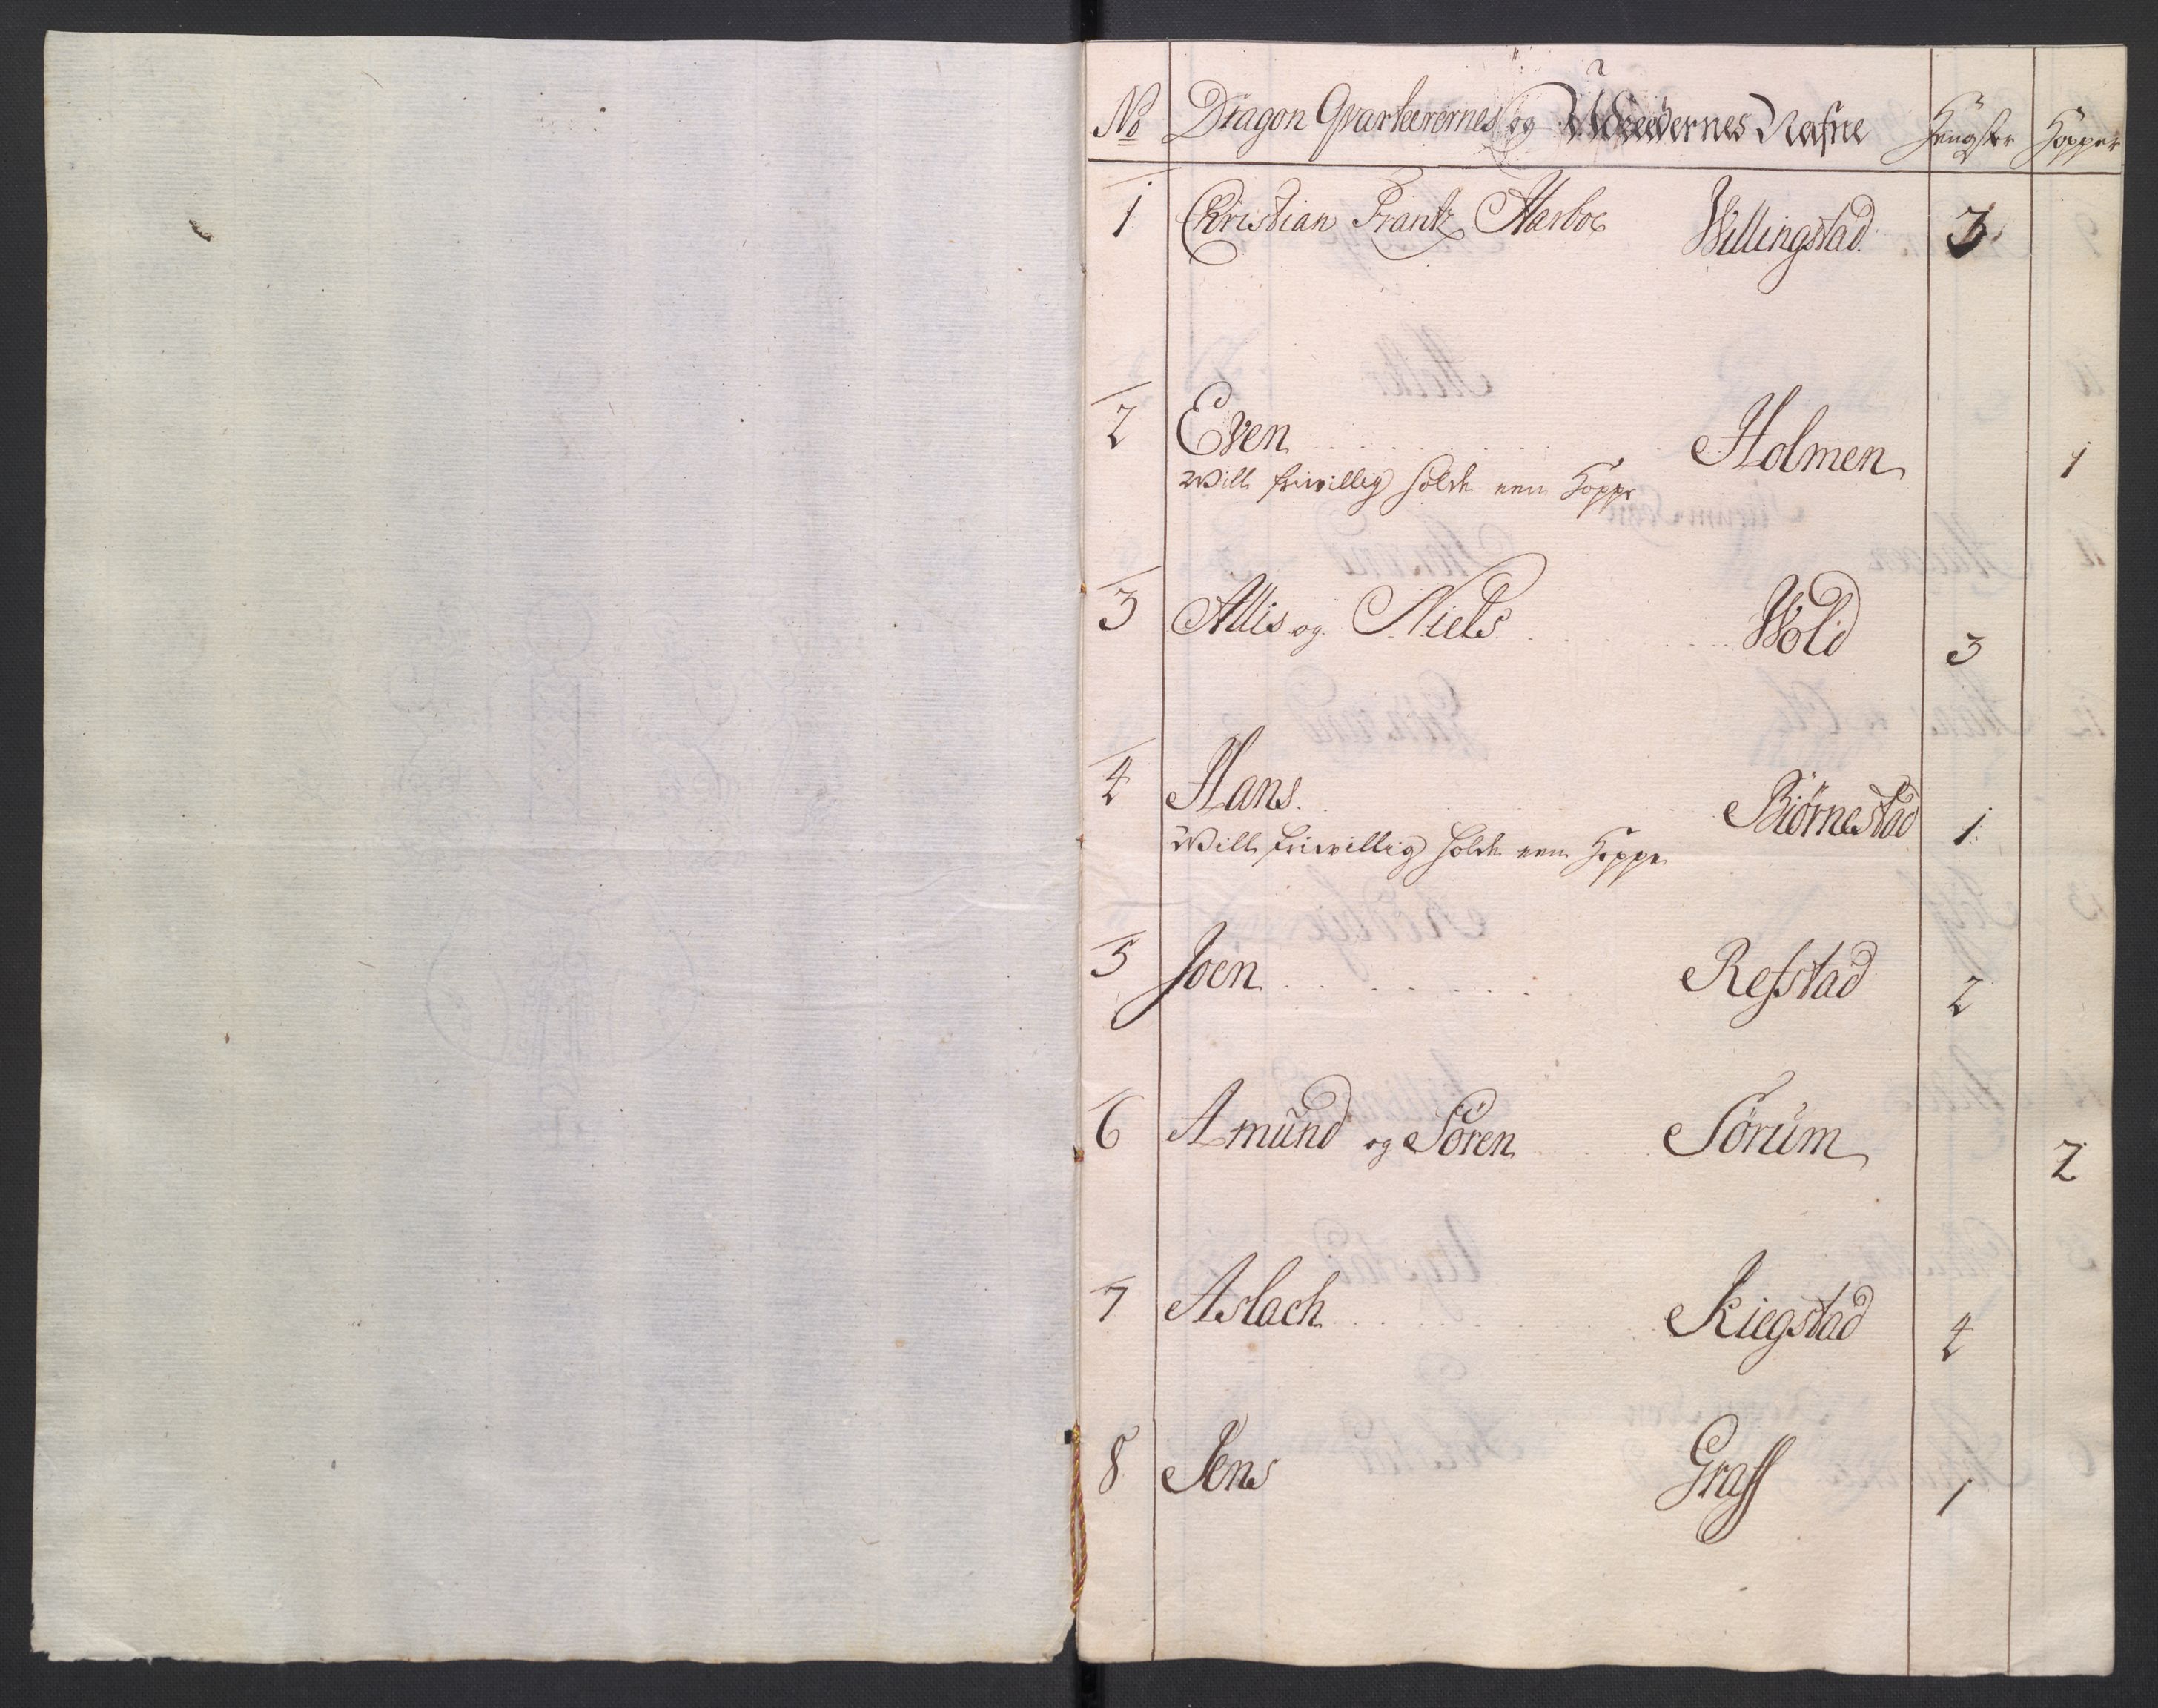 No Dragon Qvarteerernes og Nafne Hengster Hopper
1 Christian Frantz Harboe Willingstad 3
2 Even Holmen 1
Will friwillig holde een Hoppe
3 Allis og Niels Wold 3
4 Hans Biörnestad 1
Will friwillig holde een Hoppe
5 Joen Refstad 2
6 Amŭnd og Sören Sörŭm 2
7 Aslach Kiegstad 4
8 Jens Graff 1